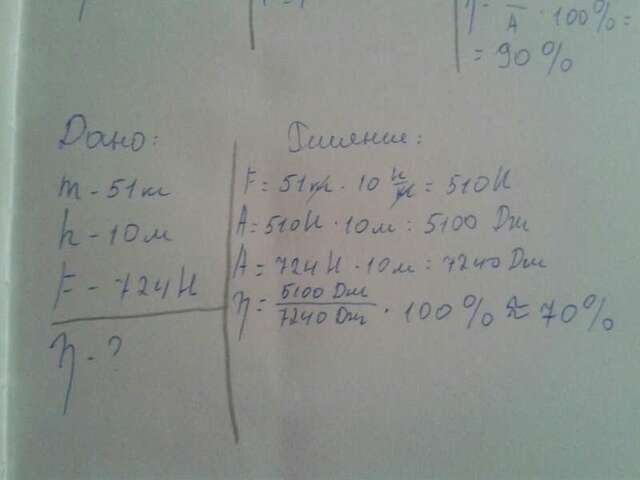 η = — / A · 100% =
= 90%
Дано:
m - 51кг
h - 10м
F - 724Н
η - ?
Решение:
F = 51кг · 10 Н/кг = 510Н
A = 510Н · 10м = 5100 Дж
A = 724Н · 10м = 7240 Дж
η = 5100 Дж / 7240 Дж · 100% ≈ 70%